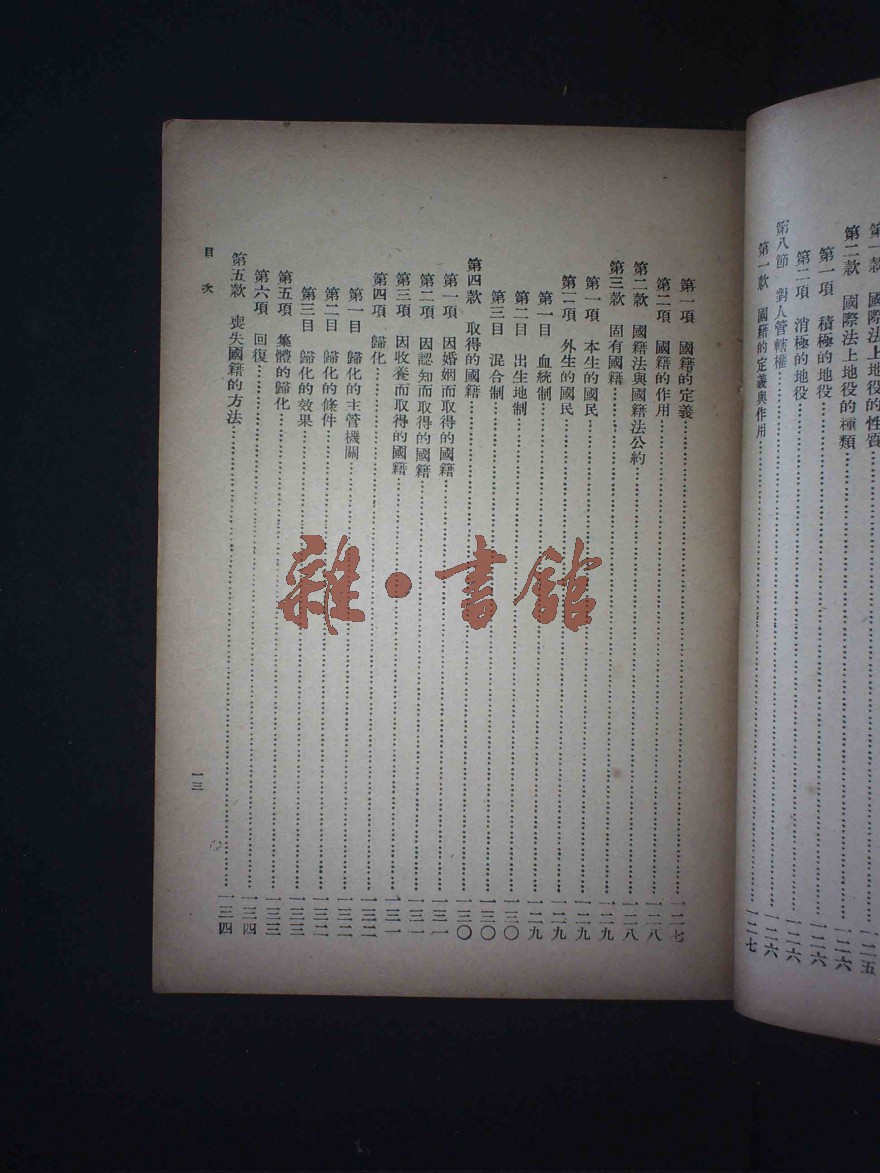 第一款 國際法上地役的性質……一二五
第二款 國際法上地役的種類……一二六
第一項 積極的地役……一二六
第二項 消極的地役……一二六
第八節 對人管轄權……一二六
第一款 國籍的定義與作用……一二七
第一項 國籍的定義……一二七
第二項 國籍的作用……一二八
第二款 國籍法與國籍法公約……一二八
第三款 固有國籍……一二九
第一項 本生的國民……一二九
第二項 外生的國民……一二九
第一目 血統制……一二九
第二目 出生地制……一三〇
第三目 混合制……一三〇
第四款 取得的國籍……一三〇
第一項 因婚姻而取得的國籍……一三一
第二項 因認知而取得的國籍……一三一
第三項 因收養而取得的國籍……一三一
第四項 歸化……一三二
第一目 歸化的主管機關……一三二
第二目 歸化的條件……一三二
第三目 歸化的效果……一三三
第五項 集體的歸化……一三三
第六項 回復……一三四
第五款 喪失國籍的方法……一三四
目次
一三
雜·書館